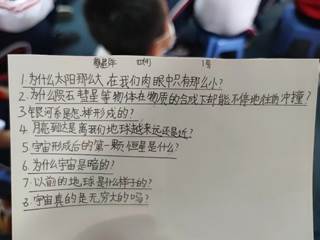 1.为什么太阳那么大,在我们肉眼中只有那么小?
2.为什么陨石彗星等物体在物质的合成下却能不停地往前冲撞?
3.银河系是怎样形成的?
4.月亮到底是离我们地球越来远还是近?
5.宇宙形成后的第一颗恒星是什么?
6.为什么宇宙是暗的?
7.以前的地球是什么样子的?
8.宇宙真的是无穷大的吗?